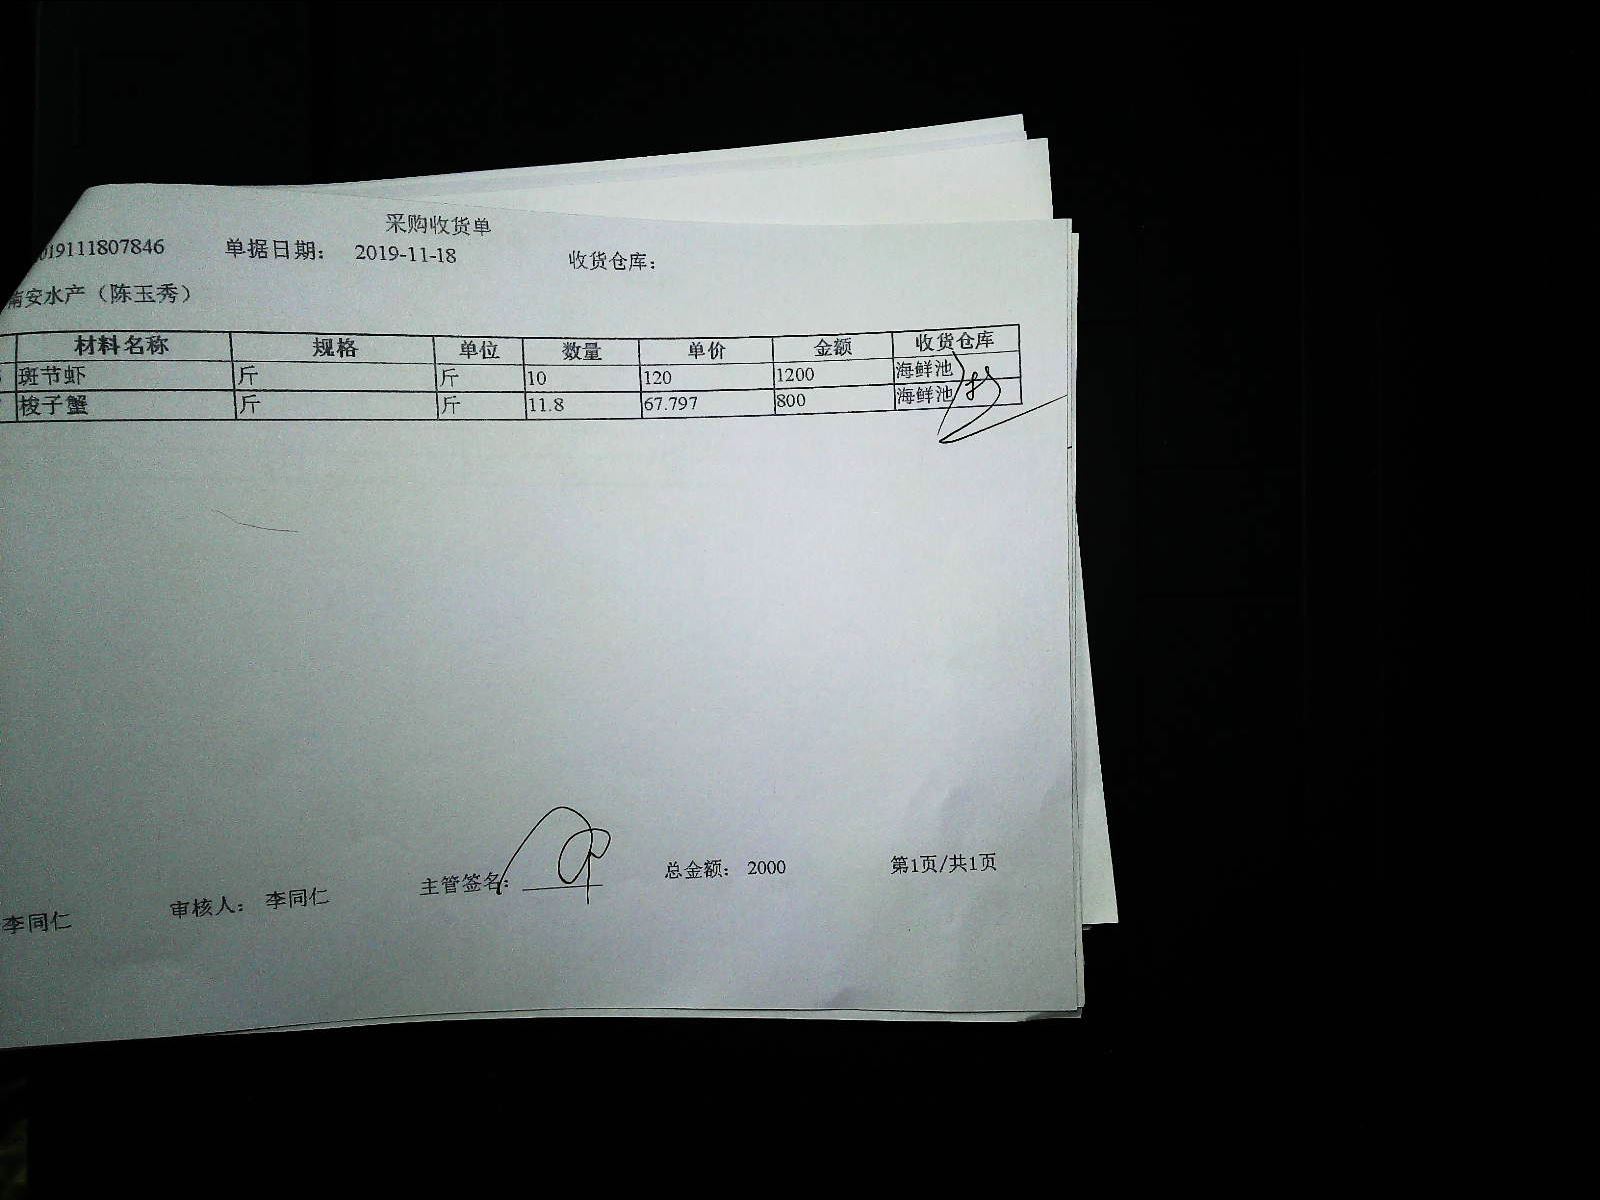 采购收货单
019111807846 单据日期： 2019-11-18 收货仓库：
南安水产（陈玉秀）
材料名称 规格 单位 数量 单价 金额 收货仓库
斑节虾 斤 斤 10 120 1200 海鲜池
梭子蟹 斤 斤 11.8 67.797 800 海鲜池
李同仁 审核人： 李同仁 主管签名： 总金额： 2000 第1页/共1页